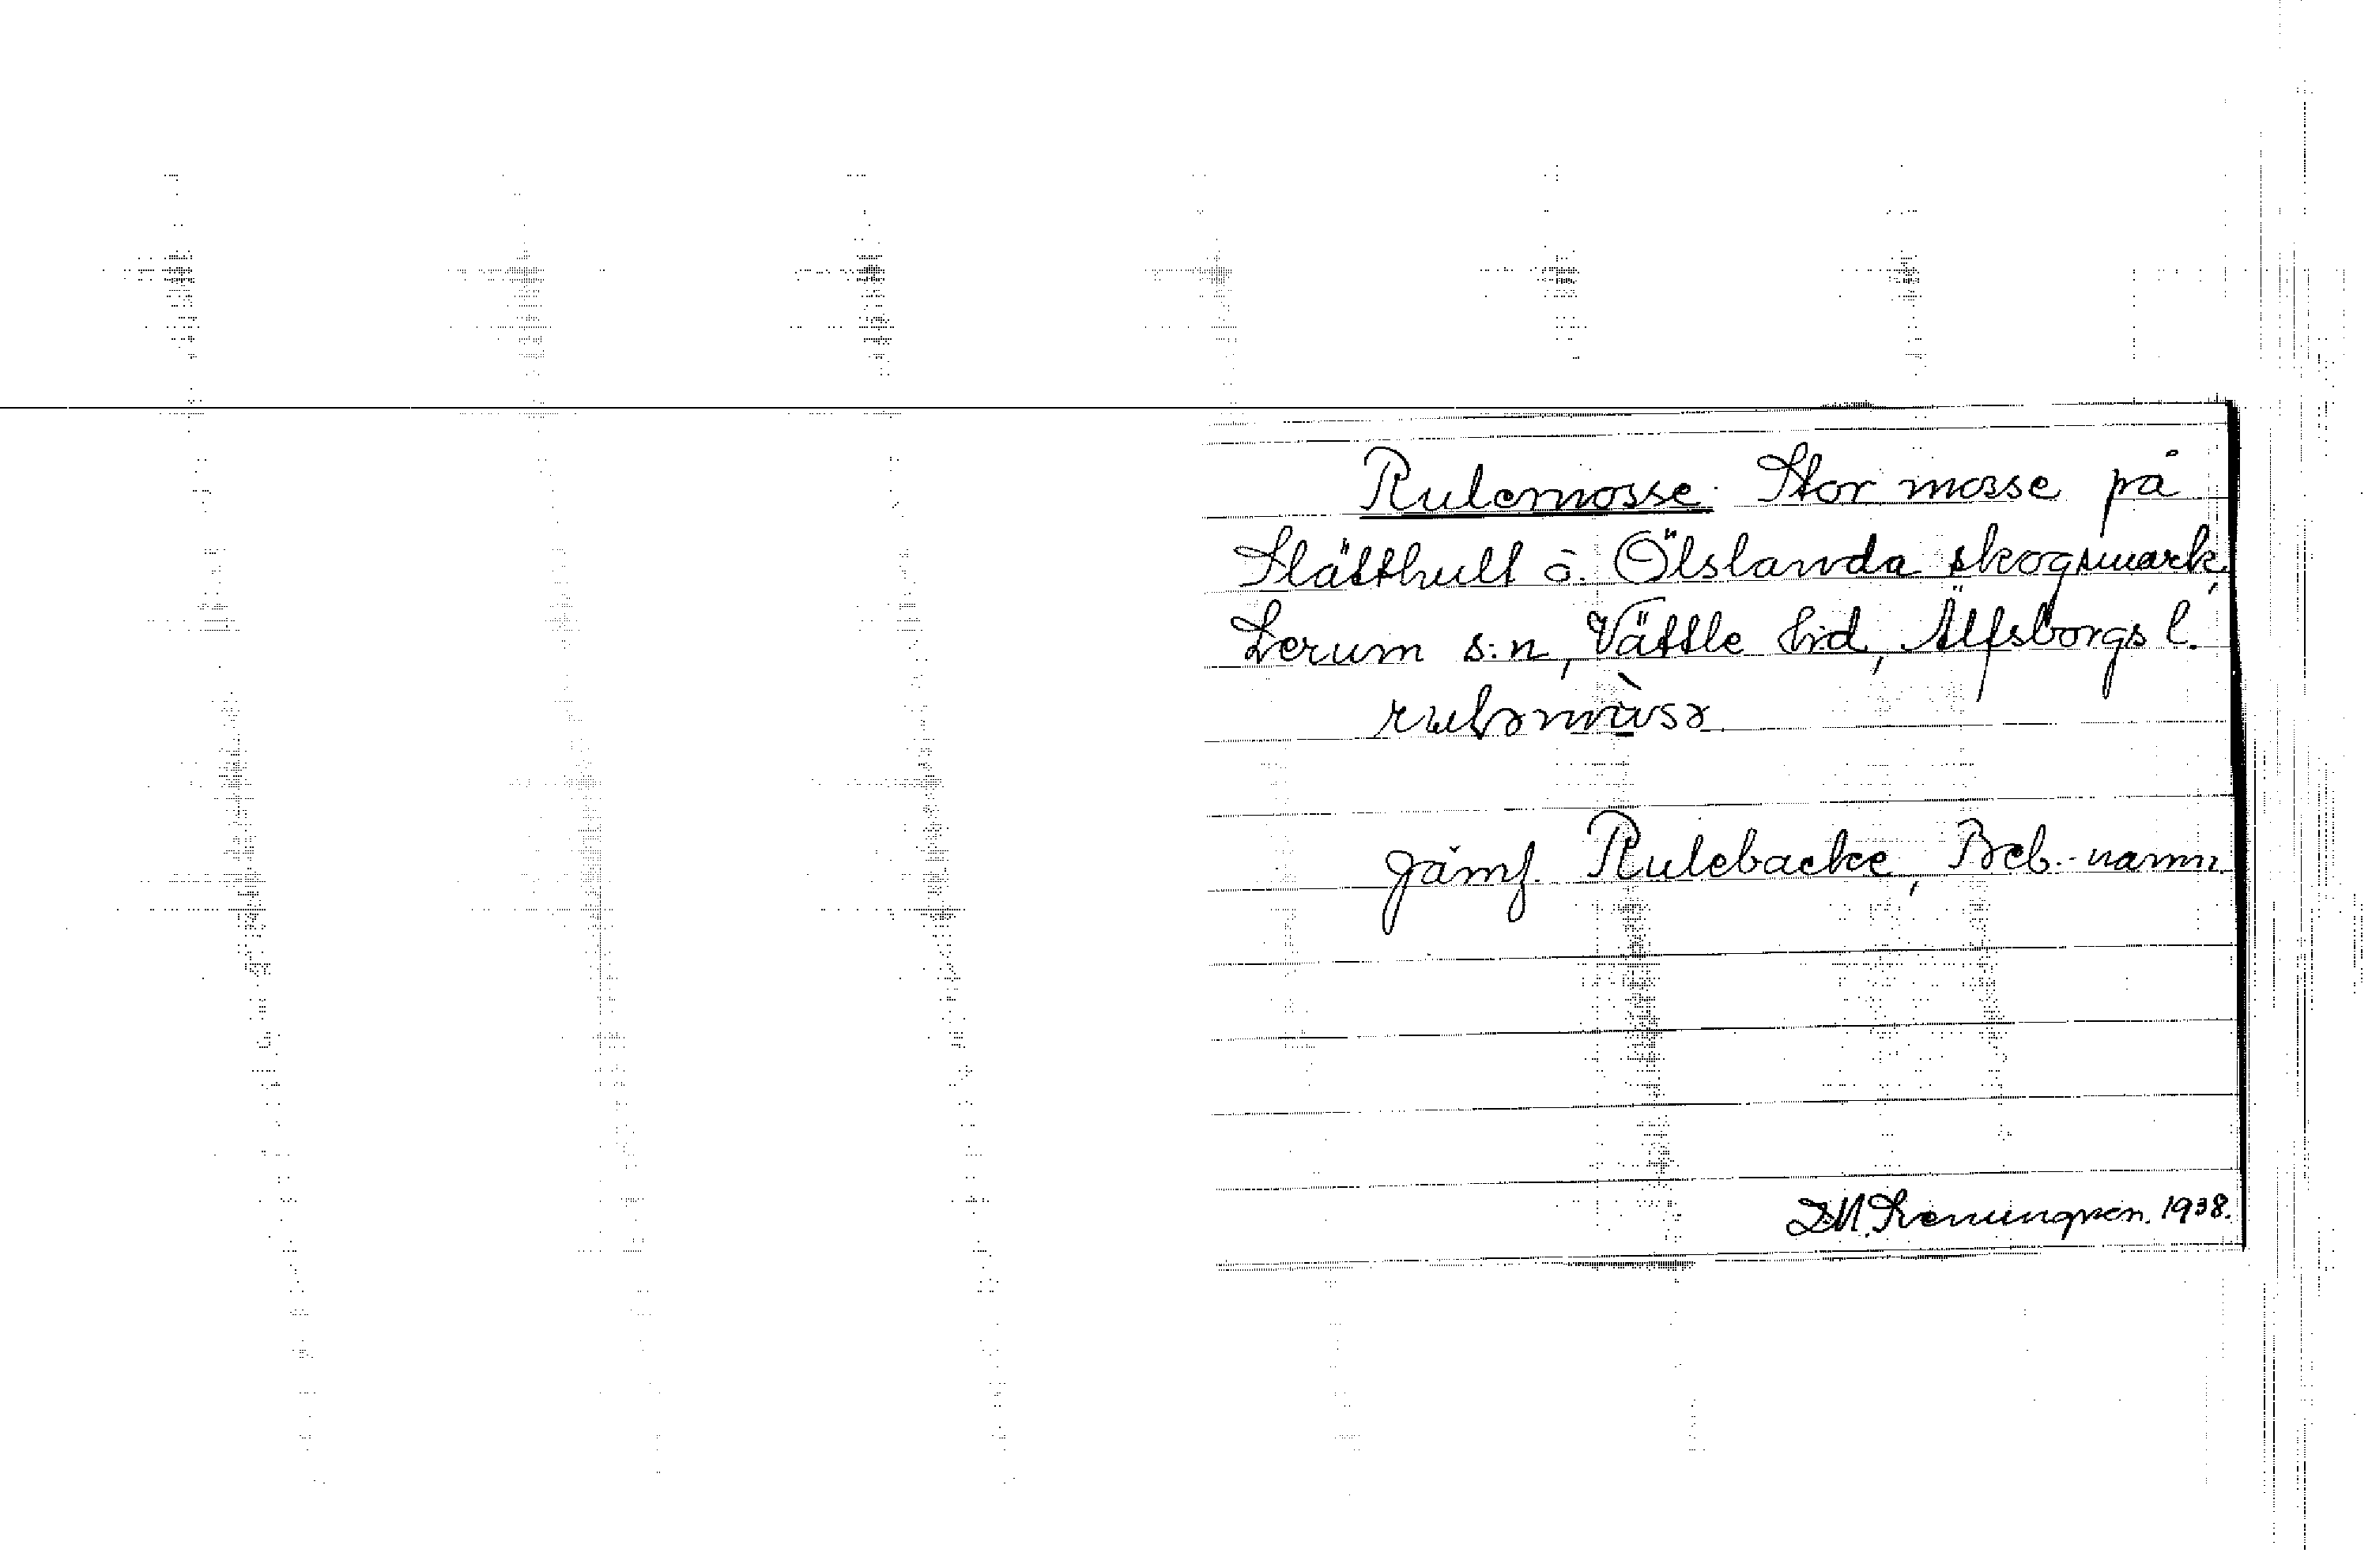 Rulemosse. Stor mosse på
Slätthult o. Ölslanda skogsmark,
Lerum s:n, Vättle hd, Älfsborgs l.
Jämf. Rulebacke, Beb.-namn.
1938.